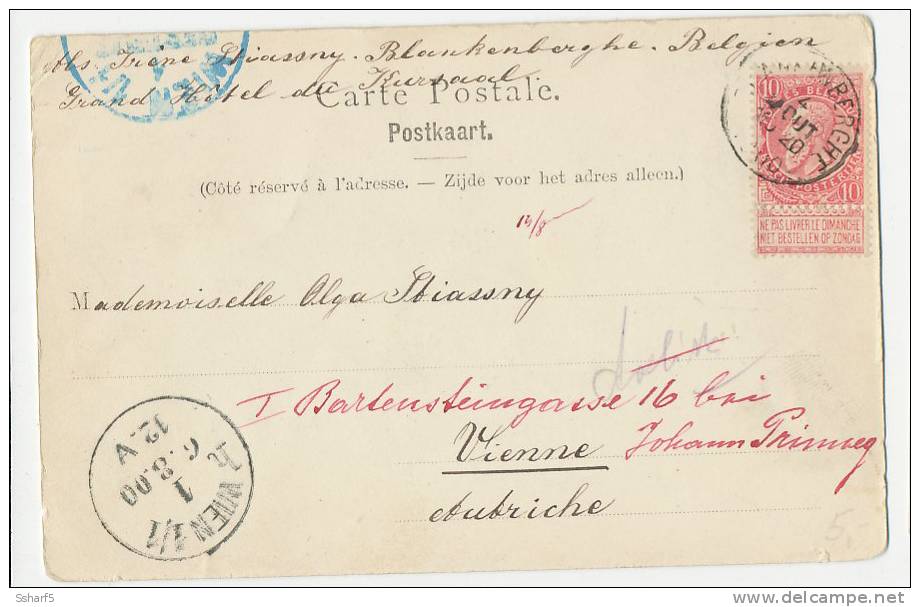 Abs. Irene Stiassny. Blankenberghe. Belgien
Grand Hôtel du Kursaal.
Carte Postale.
Postkaart.
(Côté réservé à l'adresse. — Zijde voor het adres alleen.)
10 10
10
NE PAS LIVRER LE DIMANCHE
NIET BESTELLEN OP ZONDAG
BLANKENBERGHE
AOUT
Mademoiselle Olga Stiassny
I Bartensteingasse 16 bei
Vienne Johann Primmeg
Autriche
WIEN 1/1
1
6.8.00
12.V
5.
Ssharf5
delcampe.net